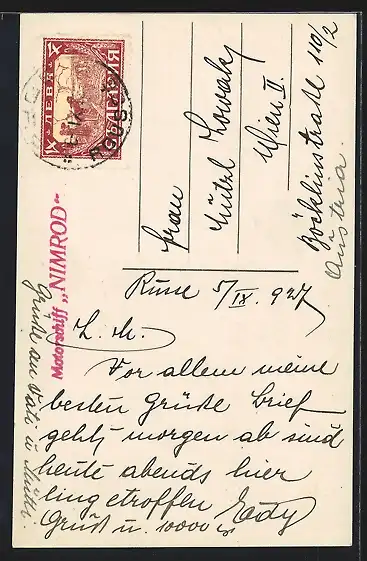 4 ЛЕВА 4
БЪЛГАРИЯ
Motorschiff „NIMROD“
Frau
Wien II.
Böcklinstraße 110/2
Austria.
Ruse 5/IX. 927
L. M.
Vor allem meine
besten Grüße Brief
geht morgen ab sind
heute abends hier
eingetroffen Edy
Gruß u. 10000
Grüße an Vati u Mutti.